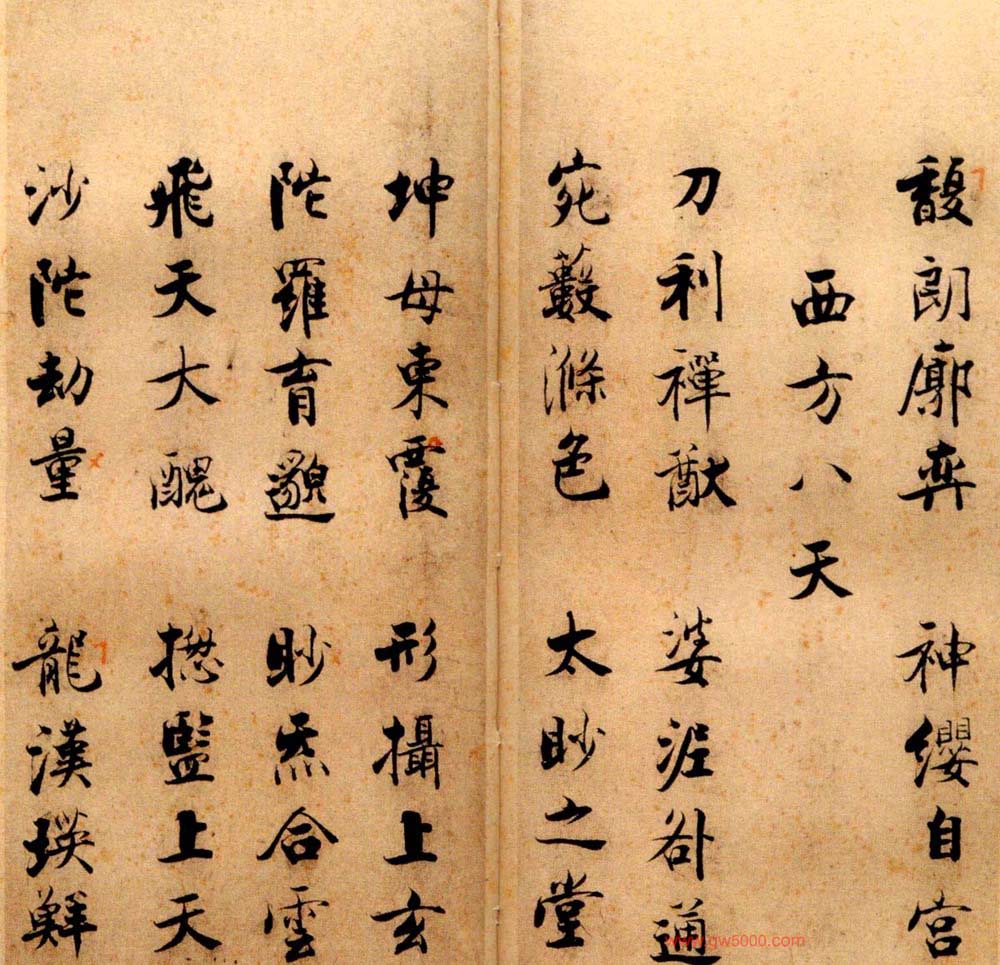 馥朗廓弈 神纓自宮
西方八天
刀利禪猷 婆泥咎通
宛藪滌色 太眇之堂
坤母東覆 形攝上玄
陀羅育邈 眇炁合雲
飛天大醜 揔監上天
沙陀劫量 龍漢瑛鮮
www.gw5000.com